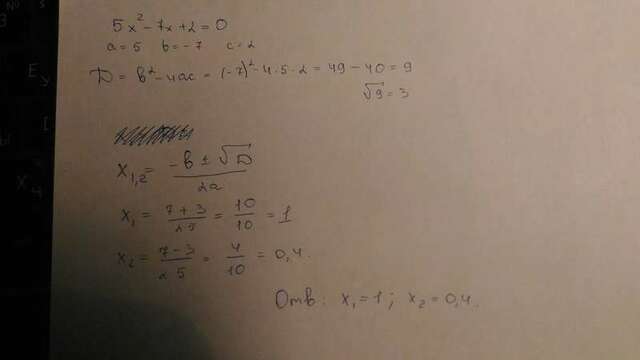 5x² - 7x + 2 = 0
a = 5 b = -7 c = 2
D = b² - 4ac = (-7)² - 4·5·2 = 49 - 40 = 9
√9 = 3
x₁,₂ = (-b ± √D) / 2a
x₁ = (7 + 3) / 2·5 = 10/10 = 1
x₂ = (7 - 3) / 2·5 = 4/10 = 0,4.
Отв: x₁ = 1; x₂ = 0,4.